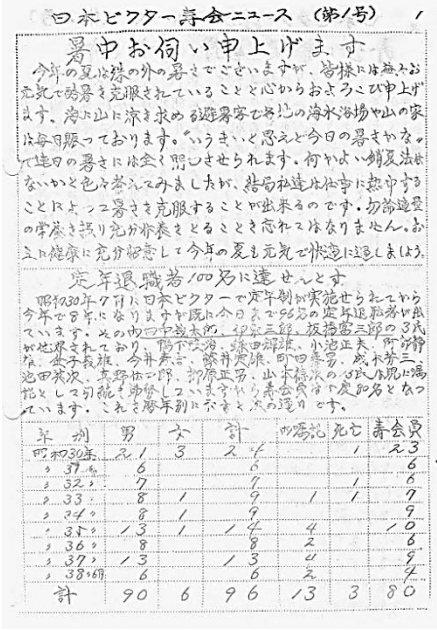 日本ビクター寿会ニュース (第1号) 1
暑中お伺い申上げます
今年の夏は殊の外の暑さでございますが、皆様には
元気で酷暑を克服されていることと心からおよろこび申上げ
ます。海に山に涼を求める避暑客で各地の海水浴場や山の家
は毎日賑っております。"いうまいと思えど今日の暑さかな"
で連日の暑さには全く閉口させられます。何かよい銷夏法は
ないかと色々考えてみましたが、結局私達は仕事に熱中する
ことによって暑さを克服することが出来るのです。勿論適量
の栄養を摂り充分休養をとることも忘れてはなりません。お
互に健康に充分留意して今年の夏も元気で快適に過しましょう。
定年退職者100名に達せんとす
昭和30年7月に日本ビクターで定年制が実施せられてから
今年で8年になりますが既に今日まで96名の定年退職者が出
ています。その内 三郎、板橋富三郎の3氏
が他界されており、 小池正夫、
池田英次、 柳原正男、
記として引続き 寿会員は丁度80名となっ
ています。これを暦年別に示すと次の通りです。
年別 男 女 計 内嘱託 死亡 寿会員
昭和30年 21 3 24 1 23
〃 31〃 6 6 6
〃 32〃 7 7 1 6
〃 33〃 8 1 9 1 1 7
〃 34〃 8 1 9 9
〃 35〃 13 1 14 4 10
〃 36〃 8 8 2 6
〃 37〃 13 13 4 9
〃 38.6月 6 6 2 4
計 90 6 96 13 3 80